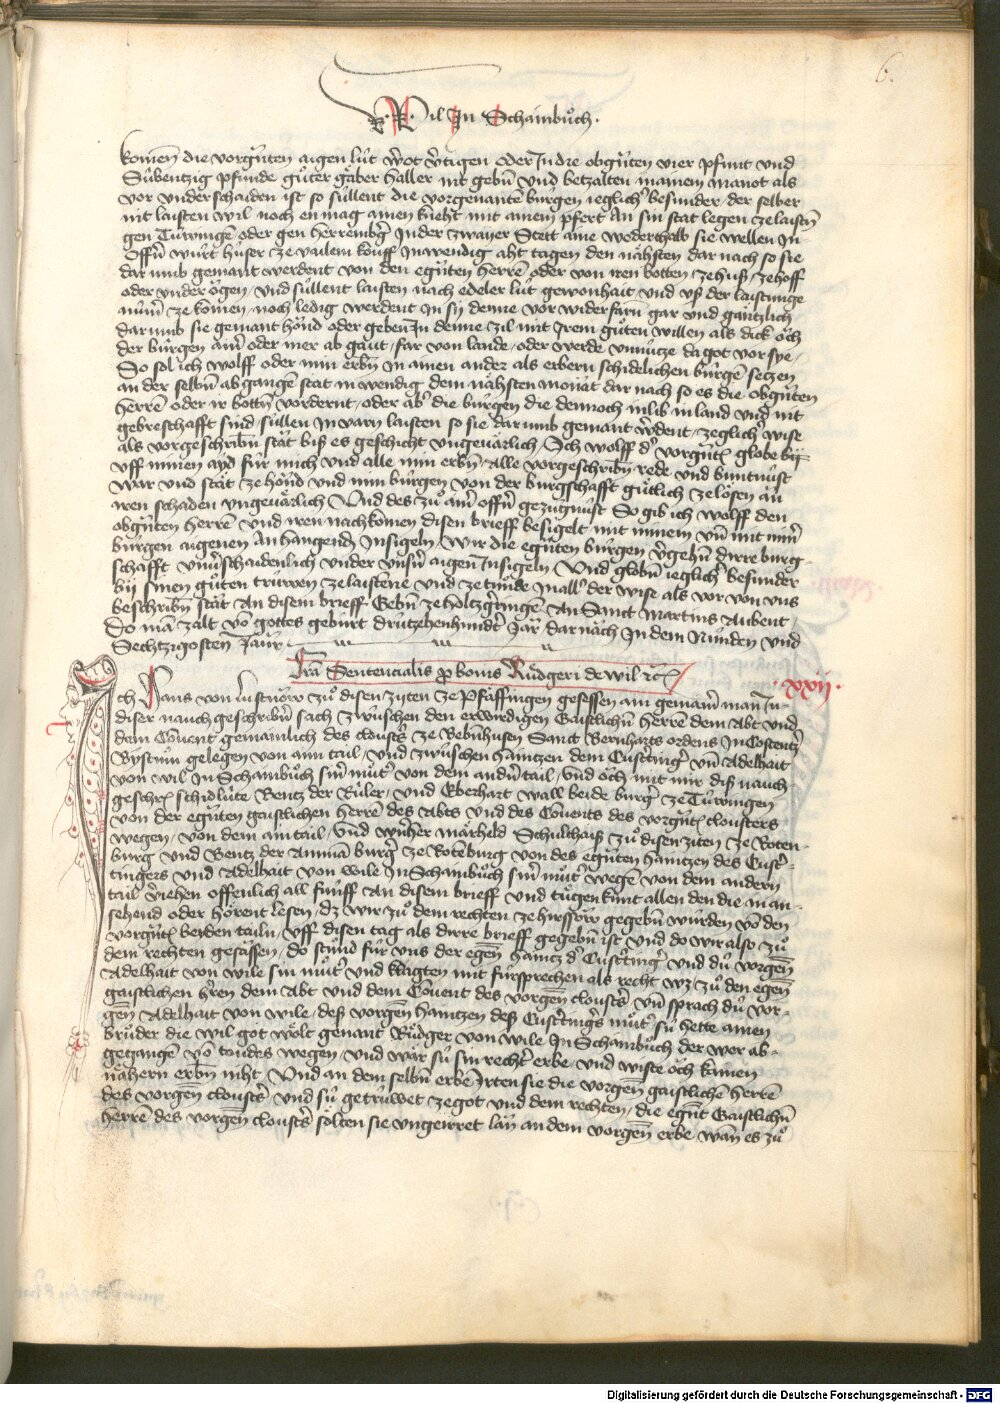 6.
Wil In Schainbuͦch.
komen̄ die vorgūten aigen lút w̄t v̄tigen oder In die obgūten vier pfunt vnd
Súbentzig pfunde guͦter gaber haller nit gebn̄ vnd betzalten in ainem manot als
vor vnderschaiden ist so súllent die vorgenantē bürgen ieglichˀ besunder der selber
nit laisten wil noch en mag ainen knecht mit ainem pfert an sin stat legen ze laistn̄
gen Túwingē oder gen herrembḡ In der zwayer Stett aine wederthalb sie wellen In
offn̄ wúrt húser ze vailem kouff Inwendig aht tagen den nähsten dar nach so sie
dar umb gemant werdent von den egūten herrē oder von iren botten ze huß ze hoff
oder vnder ögen vnd súllent laisten nach edeler lút gewonhait vnd vß der laistunge
nūm̄ ze komen noch ledig werdent In sy denne vor widerfarn gar vnd gäntzlich
darumb sie gemant hond oder geben In denne zil mit Irem guͦten willen als dick öch
der búrgen ainr̄ oder mer ab gaut far von lande oder werde vnnútze da got vor sye
So sol ich wolff oder min erbn̄ In ainen ander als erbern schidelichen bürgē setzen
an der selbn̄ abgangē stat in wendig dem nähsten monat dar nach so es die obgūten
herrē oder ir bottn̄ vordernt oder abˀ die bürgen die dennoch in lib in land vnd nit
gebreschafft sind súllen In varn laisten so sie darumb gemant w̄dent zeglichˀ wise
als vorgeschribn̄ stat biß es geschicht vngeuärlich Ich wolff dˀ vorgūt globe by
vff minen ayd für mich vnd alle min erbn̄ alle vorgeschribn̄ rede vnd buntnúst
war vnd stät ze hond vnd min búrgen von der burgschafft guͤtlich ze lösen an
iren schaden vngeuärlich Vnd des zuͦ ainr̄ offn̄ gezúgnust So gib ich wolff den
obgūten herrē vnd iren nachkomen disen brieff besigelt mit minem vn̄ mit minr̄
búrgen aigenen Anhangenden Insigeln Wir die egūten bürgen v̄gehn̄ dirre burg
schafft vnūschaidenlich vnder vnsn̄ aigen Insigeln Vnd globn̄ ieglichˀ besunder
bij sinen guͦten trúwen ze laistene vnd ze tuͦnde In allˀ der wise als vor von vns
beschribn̄ stät An disem brieff Gebn̄ ze holtzgˀringē An Sanct Martins aubent
Do mā zalt vō gottes geburt drútzehenhundtˀ Jar dar nach In dem Núnden vnd
Sechtzigosten Jaur
Lrā Sentencialis ꝓ bonis Ruͤdgeri de wil ꝛc̄
.xxij.
Ich Hans von lustnöw zuͦ disen ziten ze Pfäffingen gesessen ain gemainr̄ man In
diser nauchgeschribn̄ sach zwúschen den erwirdigen Gaistlichn̄ herrē dem Abt vnd
dem Cōuent gemainlich des clostˀs ze Bebēhusen Sanct Bernharts ordens In Costentzˀ
Bystum gelegen von aim tail vnd zwúschen haintzen dem Custˀtingˀ vn̄ Adelhait
von wil In Schainbuͦch sinr̄ muͦtˀ von dem andn̄ tail Vnd öch mit mir diß nauch
geschrn̄ schidlúte Bentz der Búler vnd Eberhart wall beide burgˀ ze Túwingen
von der egūten gaistlichen herrē des Abts vnd des Cōuents des vorgūt clousters
wegen von dem ain tail Vnd wn̄her märheld Schulthaiß zuͦ disen ziten ze Roten
burg vnd Bentz der Ammā burgˀ ze Rotēburg von des egūten haintzen des Custˀ
tingers vnd Adelhait von wile In Schainbuͦch sinr̄ muͦtˀ wegē von dem andern
tail v̄iehen offenlich all fúnff An disem brieff vnd tuͦgen kunt allen den die in an
sehend oder hörent lesen dz wir zuͦ dem rechten ze hirssow gegebn̄ wurden vō den
vorgūt beyden tailn vff disen tag als dirre brieff gegebn̄ ist vnd do wir also zuͦ
dem rechten gesässen do stuͦnd fúr vns der egen̄ haintz dˀ Custˀtingˀ vnd dú vorgen̄
Adelhait von wile sin muͦtˀ vnd klagten mit fúrsprechen als recht wz zuͦ den egen̄
gaistlichen hˀren dem Abt vnd dem Cōuent des vorgen̄ cloustˀs vn̄ sprach dú vor
gen̄ Adelhait von wile deß vorgen̄ haintzen deß Custˀtingˀs muͦtˀ sú hette ainen
bruͦder die wil got wölt genant Ruͤdger von wile In Schainbuͦch der wer ab
getgangē vō toudes wegen vnd wär sú sin rechtˀ erbe vnd wiste öch kainen
nähern erbn̄ niht Vnd an dem selbn̄ erbē Irten sie die vorgen̄ gaistlichē herrē
des vorgen̄ cloustˀs vnd sú getrúwet ze got vnd dem rechten die egūt Gaistlichn̄
herrē des vorgen̄ cloustˀs sölten sie vngeirret lan an dem vorgen̄ erbe wan es zuͦ
Digitalisierung gefördert durch die Deutsche Forschungsgemeinschaft - DFG